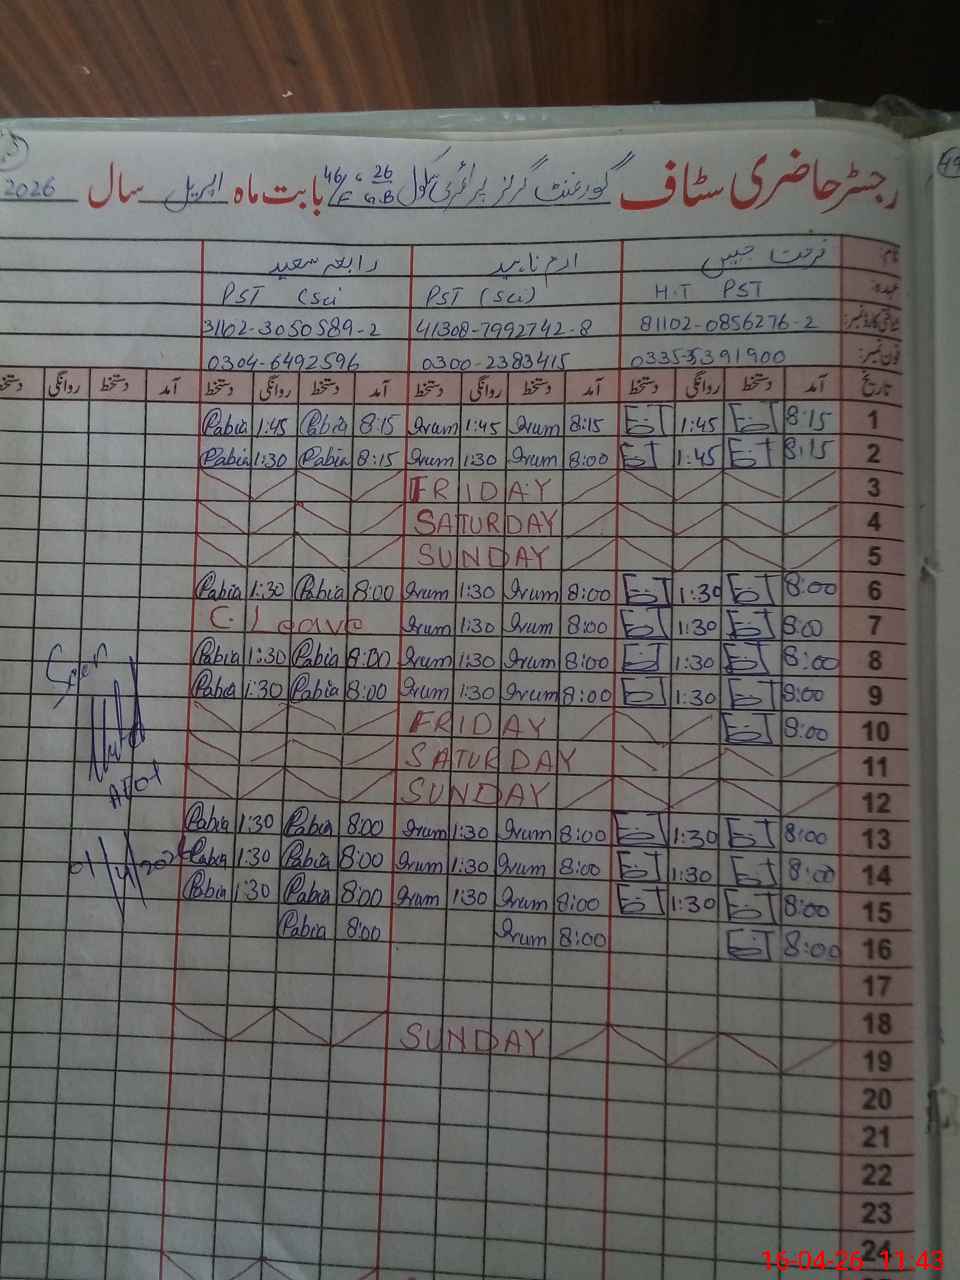 رجسٹر حاضری سٹاف گورنمنٹ گرلز پرائمری سکول بابت ماہ اپریل سال 2026
نام: فرحت جبیں ارم ناہید رابعہ سعید
عہدہ: H.T PST PST (Sci) PST (Sci
شناختی کارڈ نمبر: 81102-0856276-2 41308-7992742-8 31102-3050589-2
فون نمبر: 0335-5391900 0300-2383415 0304-6492596
تاریخ آمد دستخط روانگی دستخط آمد دستخط روانگی دستخط آمد دستخط روانگی دستخط آمد دستخط روانگی دستخط
1 8:15 1:45 8:15 Irum 1:45 Irum 8:15 Rabia 1:45 Rabia
2 8:15 1:45 8:00 Irum 1:30 Irum 8:15 Rabia 1:30 Rabia
3 FRIDAY
4 SATURDAY
5 SUNDAY
6 8:00 1:30 8:00 Irum 1:30 Irum 8:00 Rabia 1:30 Rabia
7 8:00 1:30 8:00 Irum 1:30 Irum C. Leave
8 8:00 1:30 8:00 Irum 1:30 Irum 8:00 Rabia 1:30 Rabia
9 8:00 1:30 8:00 Irum 1:30 Irum 8:00 Rabia 1:30 Rabia
10 8:00 FRIDAY
11 SATURDAY
12 SUNDAY
13 8:00 1:30 8:00 Irum 1:30 Irum 8:00 Rabia 1:30 Rabia
14 8:00 1:30 8:00 Irum 1:30 Irum 8:00 Rabia 1:30 Rabia
15 8:00 1:30 8:00 Irum 1:30 Irum 8:00 Rabia 1:30 Rabia
16 8:00 8:00 Irum 8:00 Rabia
17
18
19 SUNDAY
20
21
22
23
24
Seen
16-04-26 11:43